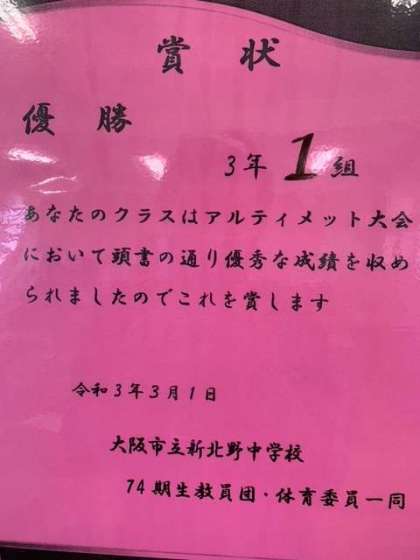 賞状
優勝
3年 1 組
あなたのクラスはアルティメット大会
において頭書の通り優秀な成績を収め
られましたのでこれを賞します
令和3年3月1日
大阪市立新北野中学校
74期生教員団・体育委員一同